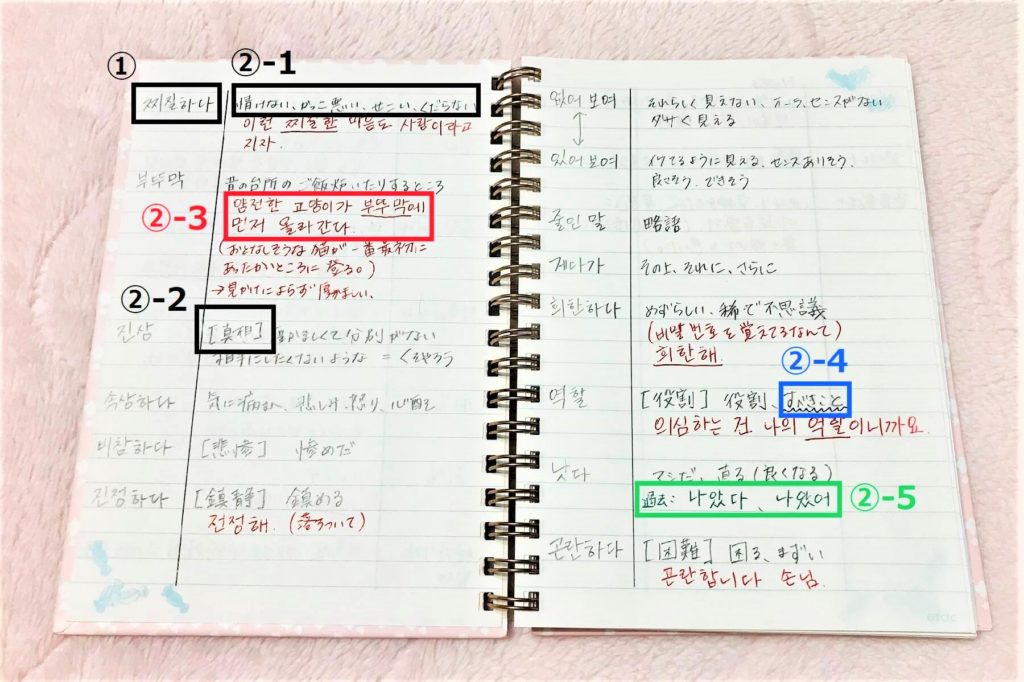 ①
②-1
찌질하다
情けない、かっこ悪い、せこい、くだらない
이런 찌질한 마음도 사랑이라고
지자.
부뚜막
昔の台所のご飯炊いたりするところ
②-3
얌전한 고양이가 부뚜막에
먼저 올라간다.
(おとなしそうな猫が一番最初に
あったかいところに登る。)
→見かけによらず厚かましい。
②-2
진상
[真相] 厚かましくて分別がない
相手にしたくないような = くそやろう
속상하다
気に病む、悲しみ、怒り、心配
비참하다
[悲惨] 惨めだ
진정하다
[鎮静] 鎮める
전정해. (落ちついて)
없어 보여
それらしく見えない、オーラ、センスがない
ダサく見える
있어 보여
イケてるように見える、センスありそう、
良さそう、できそう
줄인 말
略語
게다가
その上、それに、さらに
희한하다
めずらしい、稀で不思議
(비밀번호を覚えてるなんて)
희한해.
②-4
역할
[役割] 役割、すべきこと
의심하는 건 나의 역할이니까요.
낫다
マシだ、直る(良くなる)
過去: 나았다、나았어
②-5
곤란하다
[困難] 困る、まずい
곤란합니다 손님.